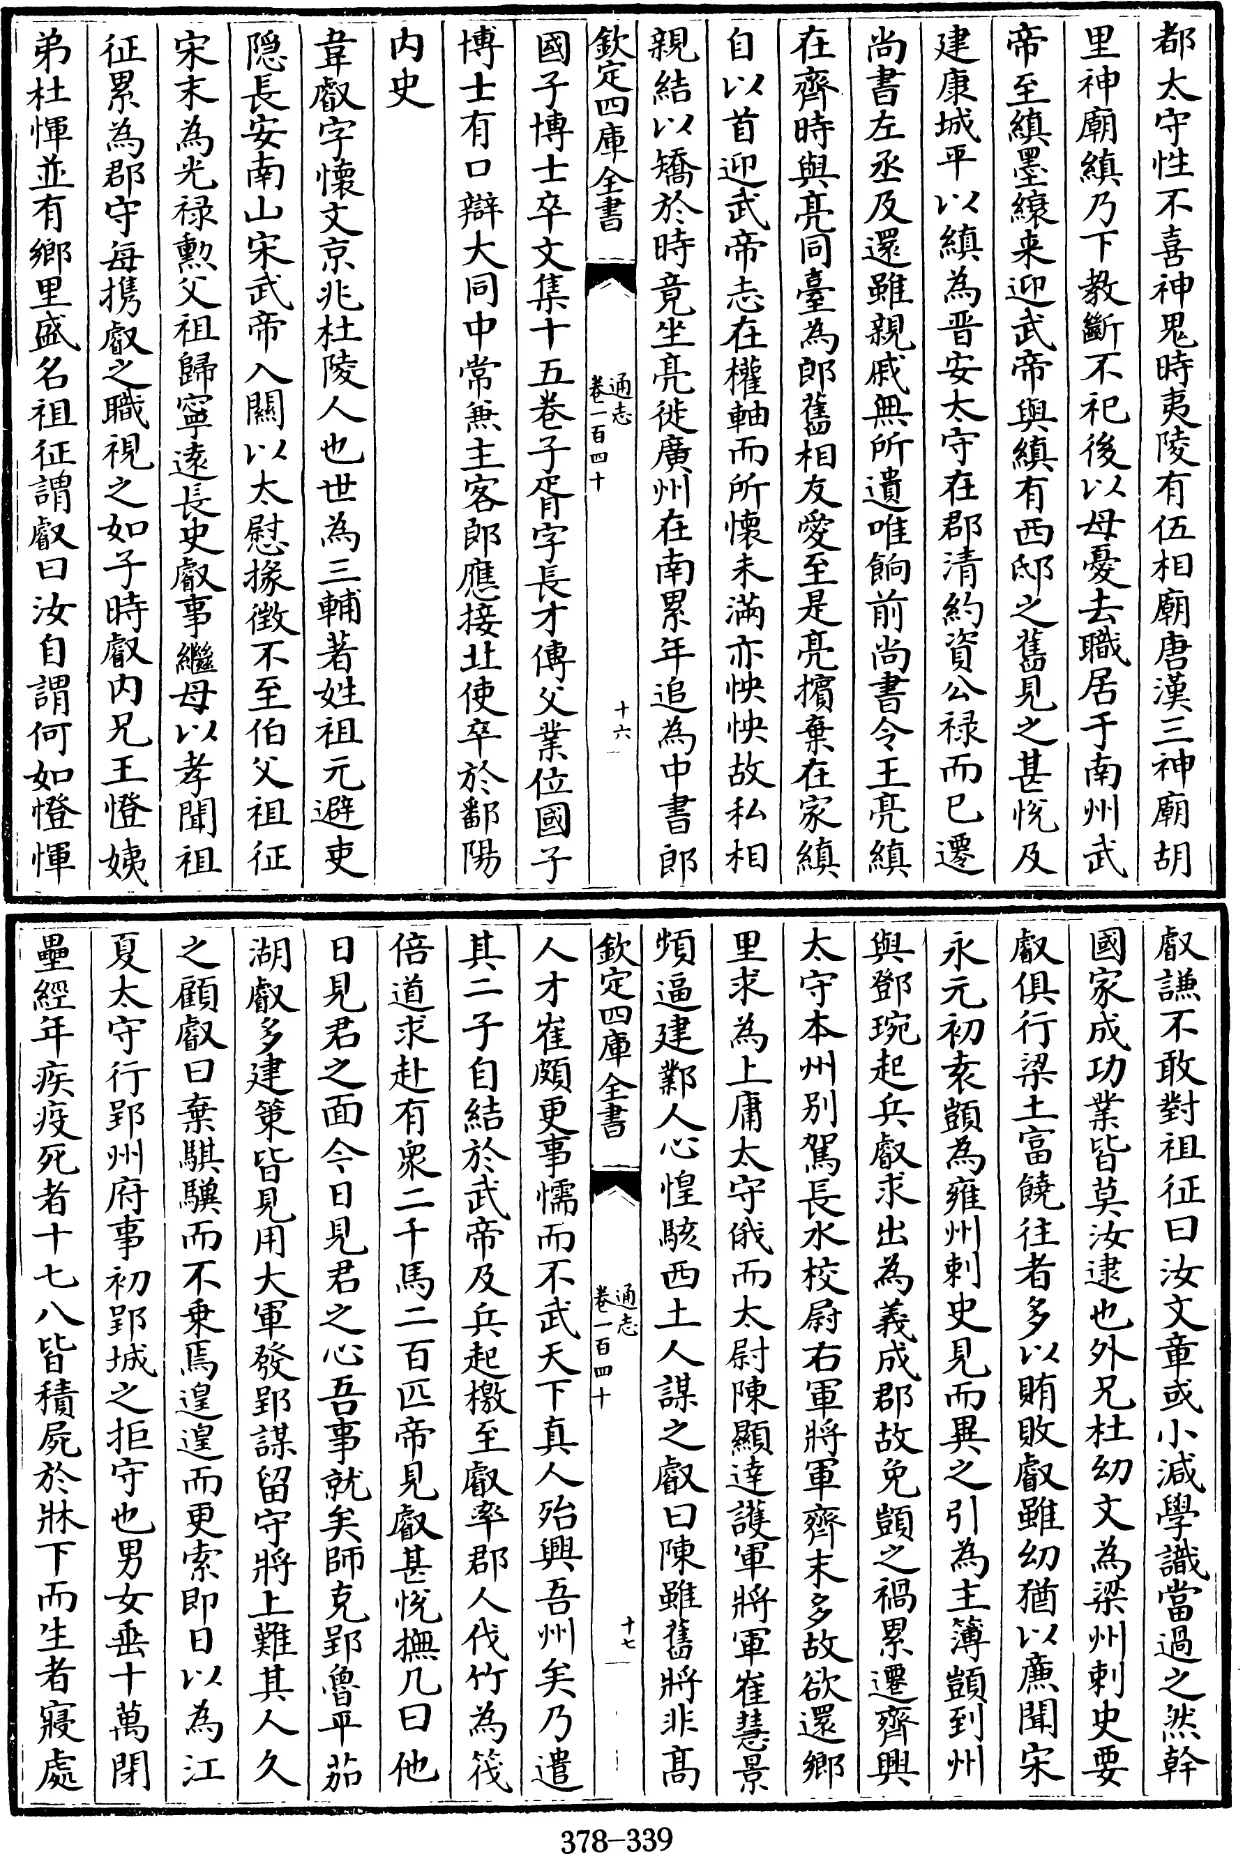 都太守性不喜神鬼時夷陵有伍相廟唐漢三神廟胡
里神廟縝乃下教斷不祀後以母憂去職居于南州武
帝至縝墨縗来迎武帝與縝有西邸之舊見之甚悅及
建康城平以縝為晋安太守在郡清約資公禄而已遷
尚書左丞及還雖親戚無所遺唯餉前尚書令王亮縝
在齊時與亮同臺為郎舊相友愛至是亮擯棄在家縝
自以首迎武帝志在權軸而所懷未滿亦怏怏故私相
親結以矯於時竟坐亮徙廣州在南累年追為中書郎
欽定四庫全書
通志
卷一百四十
十六
國子博士卒文集十五卷子胥字長才傳父業位國子
博士有口辯大同中常兼主客郎應接北使卒於鄱陽
内史
韋叡字懷文京兆杜陵人也世為三輔著姓祖元避吏
隐長安南山宋武帝入關以太慰掾徵不至伯父祖征
宋末為光禄勲父祖歸寧遠長史叡事繼母以孝聞祖
征累為郡守每携叡之職視之如子時叡内兄王憕姨
弟杜惲並有鄉里盛名祖征謂叡曰汝自謂何如憕惲
叡謙不敢對祖征曰汝文章或小減學識當過之然幹
國家成功業皆莫汝逮也外兄杜幼文為梁州刺史要
叡俱行梁土富饒往者多以賄敗叡雖幼猶以亷聞宋
永元初袁顗為雍州刺史見而異之引為主簿顗到州
與鄧琬起兵叡求出為義成郡故免顗之禍累遷齊興
太守本州别駕長水校尉右軍將軍齊末多故欲還鄉
里求為上庸太守俄而太尉陳顯達護軍將軍崔慧景
頻逼建鄴人心惶駭西土人謀之叡曰陳雖舊將非高
欽定四庫全書
通志
卷一百四十
十七
人才崔頗更事懦而不武天下真人殆興吾州矣乃遣
其二子自結於武帝及兵起檄至叡率郡人伐竹為筏
倍道求赴有衆二千馬二百匹帝見叡甚悅撫几曰他
日見君之面今日見君之心吾事就矣師克郢魯平茄
湖叡多建策皆見用大軍發郢謀留守將上難其人久
之顧叡曰棄騏驥而不乗焉遑遑而更索即日以為江
夏太守行郢州府事初郢城之拒守也男女垂十萬閉
壘經年疾疫死者十七八皆積屍於牀下而生者寢處
378-339